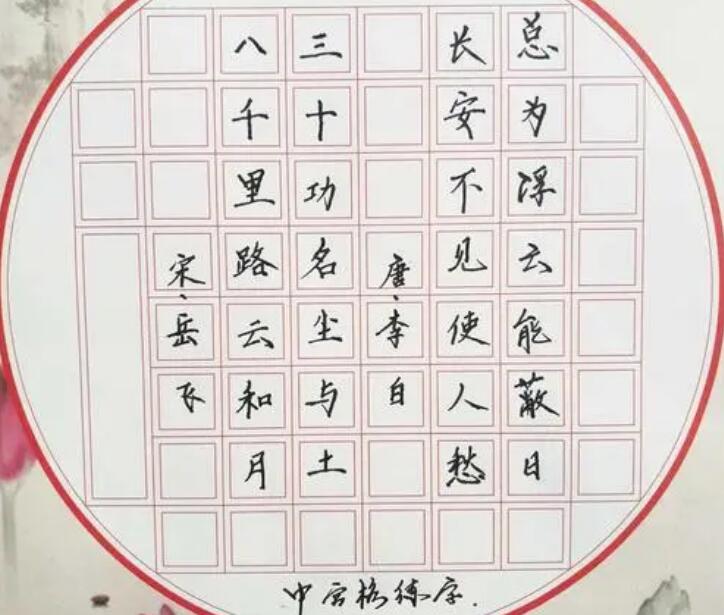 总为浮云能蔽日
长安不见使人愁
唐·李白
三十功名尘与土
八千里路云和月
宋·岳飞
中宫格练字.